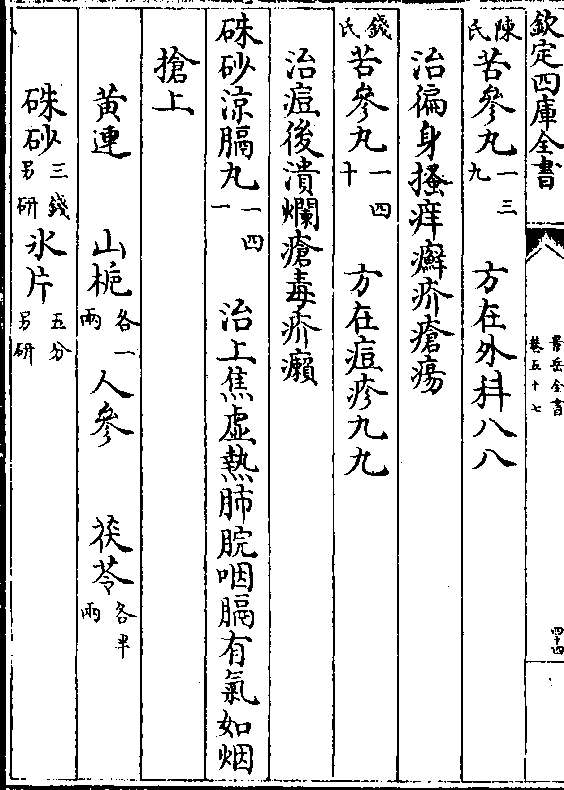 欽定四庫全書
景岳全書
卷五十七
四十四
陳氏苦參丸一三九 方在外科八八
治徧身搔痒癬疥瘡瘍
錢氏苦參丸一四十 方在痘疹九九
治痘後潰爛瘡毒疥癩
硃砂涼膈丸一四一 治上焦虛熱肺脘咽膈有氣如烟
搶上
黄連 山梔各一兩 人參 茯苓各半兩
硃砂三錢另研 氷片五分另研